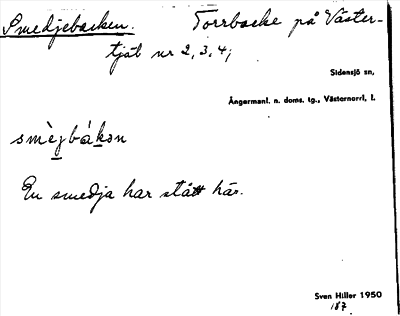 Smedjebacken. Torrbacke på Väster-
tjäl nr 2, 3, 4;
Sidensjö sn,
Ångermanl. n. doms. tg., Västernorrl, l.
smèjbákən
En smedja har stått här.
Sven Hiller 1950
187